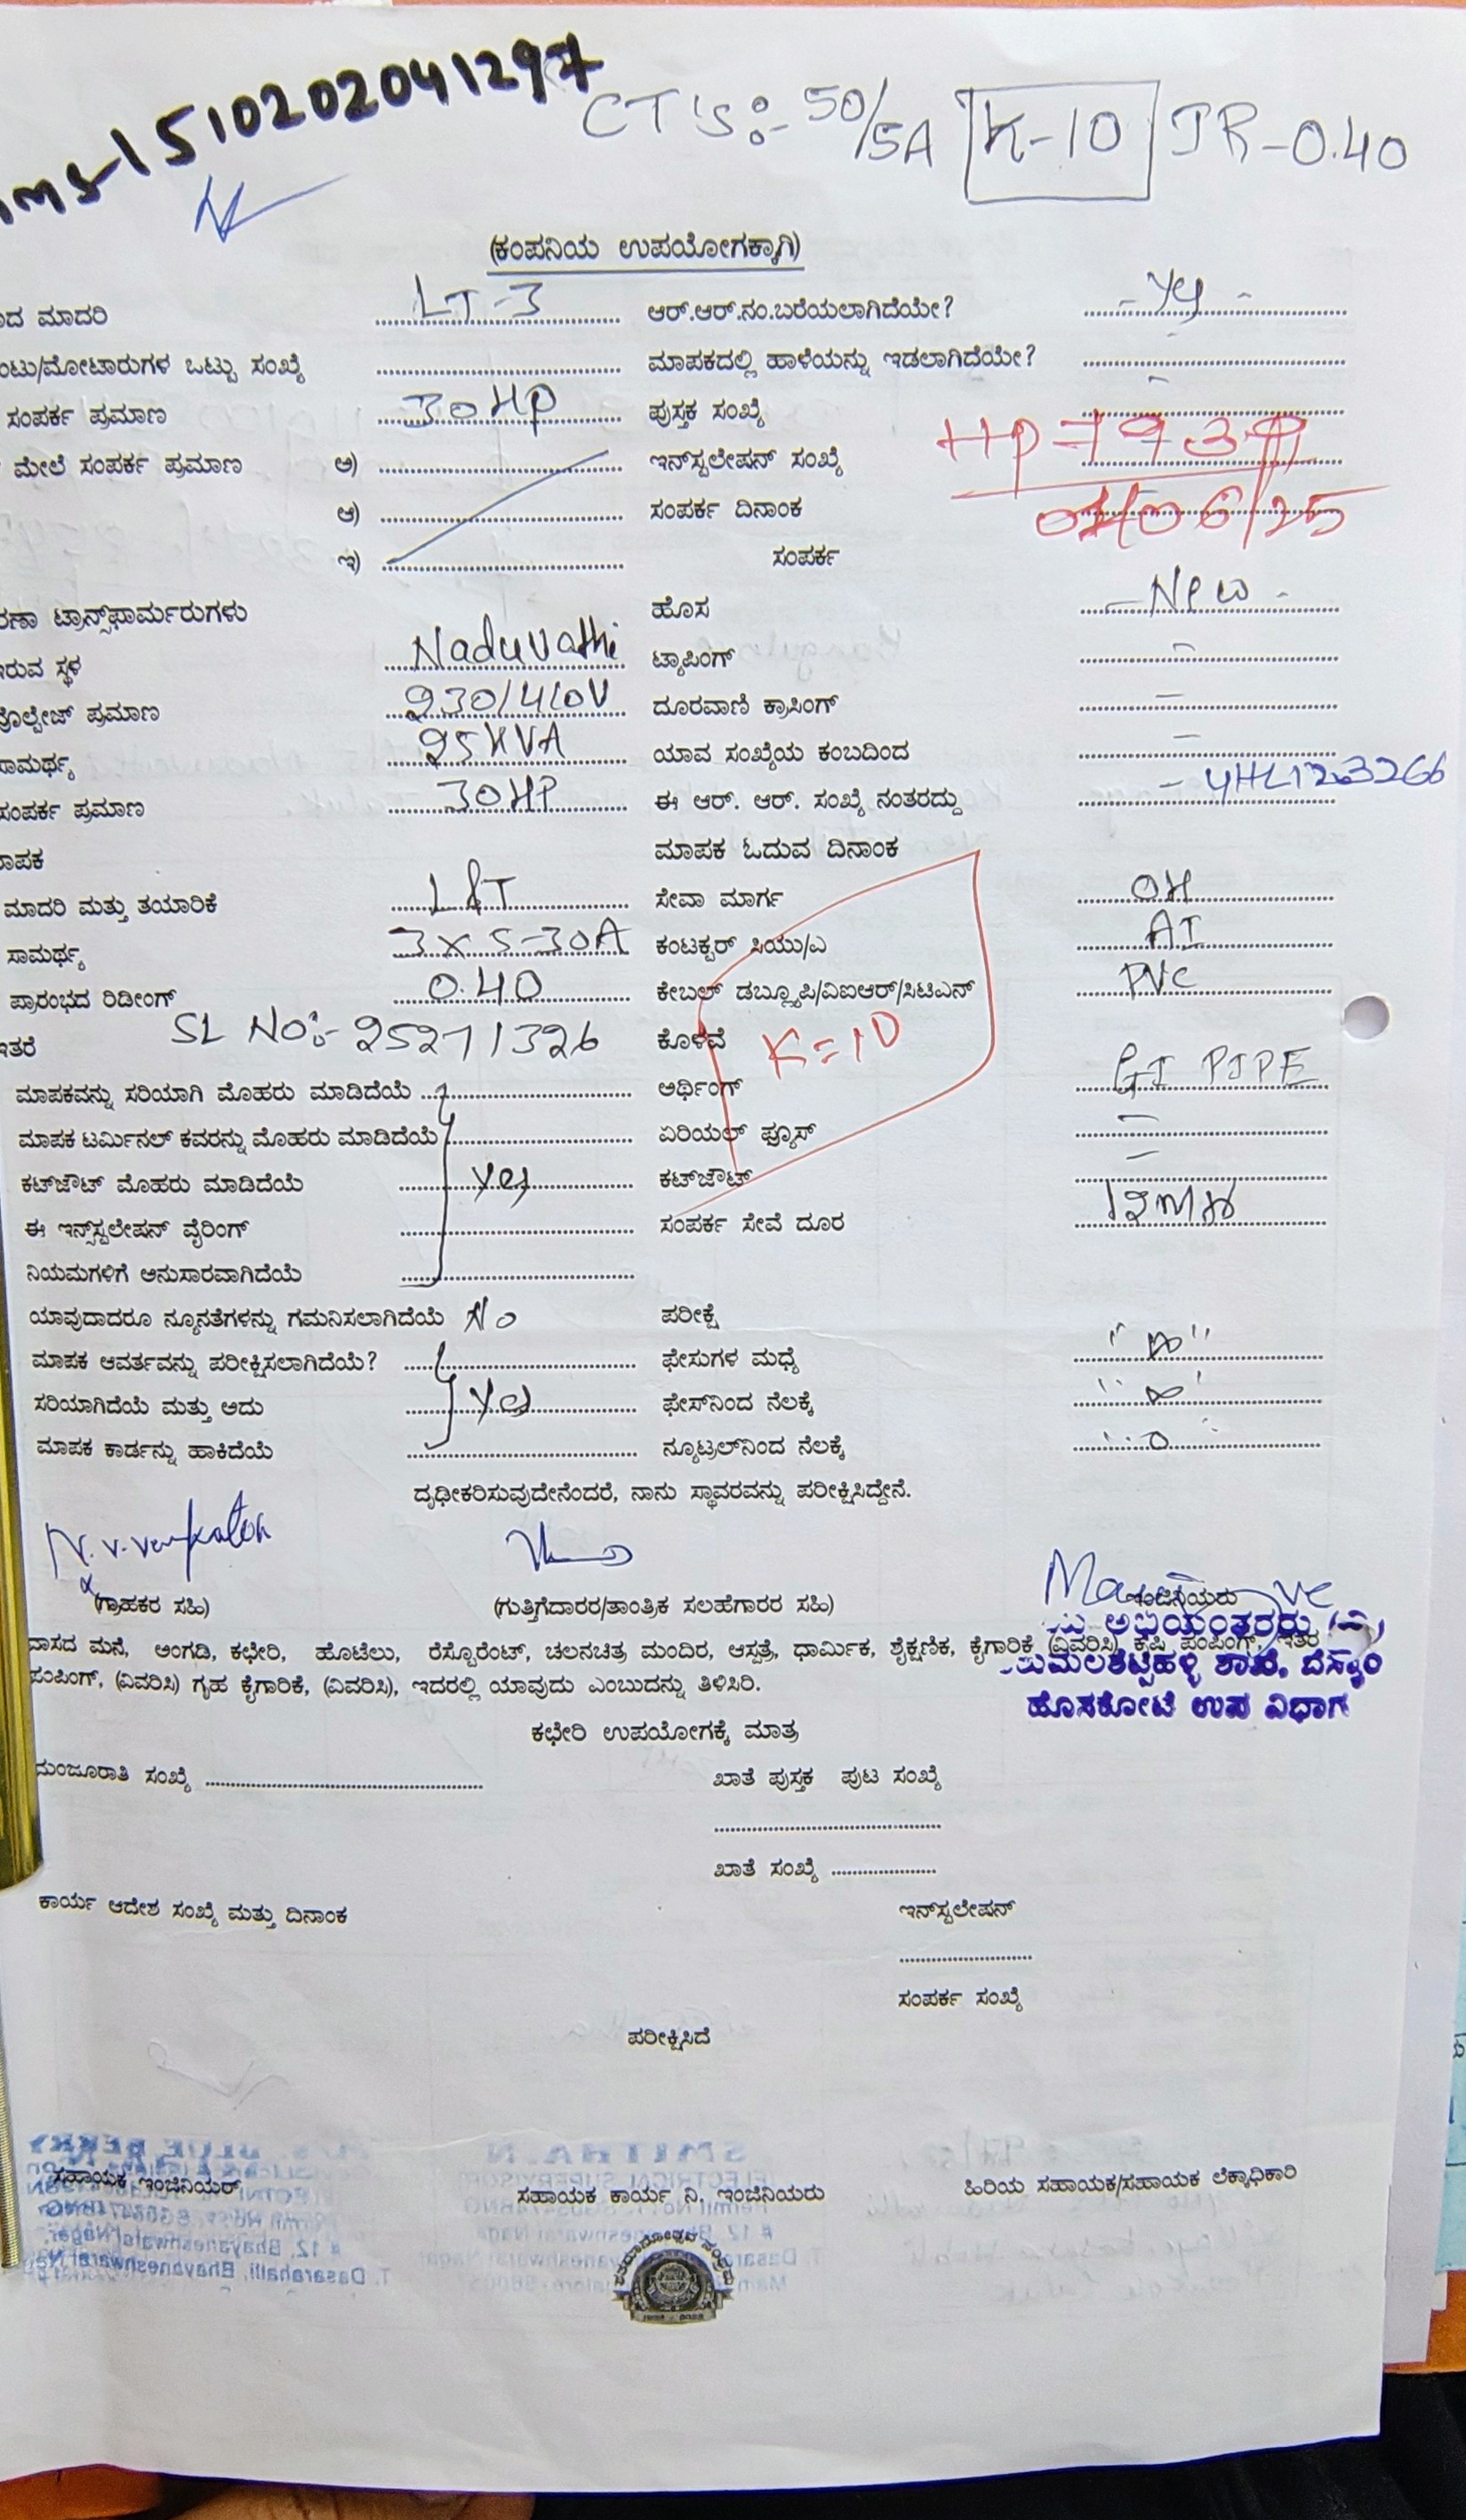 1510202041297
CT's:- 50/5A K-10 IR-0.40
(ಕಂಪನಿಯ ಉಪಯೋಗಕ್ಕಾಗಿ)
ಮಾದರಿ LT-3 ಆರ್.ಆರ್.ನಂ.ಬರೆಯಲಾಗಿದೆಯೇ? - Yes -
ಒಟ್ಟು ಸಂಖ್ಯೆ ಮಾಪಕದಲ್ಲಿ ಹಾಳೆಯನ್ನು ಇಡಲಾಗಿದೆಯೇ? -
ಸಂಪರ್ಕ ಪ್ರಮಾಣ 30HP ಪುಸ್ತಕ ಸಂಖ್ಯೆ -
ಮೇಲೆ ಸಂಪರ್ಕ ಪ್ರಮಾಣ ಅ) ಇನ್‌ಸ್ಟಲೇಷನ್ ಸಂಖ್ಯೆ
ಆ) ಸಂಪರ್ಕ ದಿನಾಂಕ
ಇ) ಸಂಪರ್ಕ
ಟ್ರಾನ್ಸ್‌ಫಾರ್ಮರುಗಳು ಹೊಸ - New -
ಸ್ಥಳ Naduvathi ಟ್ಯಾಪಿಂಗ್ -
ಪ್ರಮಾಣ 230/410V ದೂರವಾಣಿ ಕ್ರಾಸಿಂಗ್ -
ಸಾಮರ್ಥ್ಯ 25KVA ಯಾವ ಸಂಖ್ಯೆಯ ಕಂಬದಿಂದ -
ಸಂಪರ್ಕ ಪ್ರಮಾಣ 30HP ಈ ಆರ್. ಆರ್. ಸಂಖ್ಯೆ ನಂತರದ್ದು - 4HL123266
ಮಾಪಕ ಓದುವ ದಿನಾಂಕ
ಮಾದರಿ ಮತ್ತು ತಯಾರಿಕೆ L&T ಸೇವಾ ಮಾರ್ಗ OH
ಸಾಮರ್ಥ್ಯ 3x5-30A ಕಂಟಕ್ಟರ್ ಸಿಯು/ಎ AI
ಪ್ರಾರಂಭದ ರಿಡೀಂಗ್ 0.40 ಕೇಬಲ್ ಡಬ್ಲ್ಯೂಪಿ/ವಿಐಆರ್/ಸಿಟಿಎನ್ PVC
SL NO:- 25271326 ಕೊಳವೆ K=10
ಮಾಪಕವನ್ನು ಸರಿಯಾಗಿ ಮೊಹರು ಮಾಡಿದೆಯೆ ಅರ್ಥಿಂಗ್ GI PIPE
ಮಾಪಕ ಟರ್ಮಿನಲ್ ಕವರನ್ನು ಮೊಹರು ಮಾಡಿದೆಯೆ ಏರಿಯಲ್ ಫ್ಯೂಸ್ -
ಕಟ್‌ಔಟ್ ಮೊಹರು ಮಾಡಿದೆಯೆ Yes ಕಟ್‌ಔಟ್ -
ಈ ಇನ್ಸ್‌ಟಲೇಷನ್ ವೈರಿಂಗ್ ಸಂಪರ್ಕ ಸೇವೆ ದೂರ
ನಿಯಮಗಳಿಗೆ ಅನುಸಾರವಾಗಿದೆಯೆ
ಯಾವುದಾದರೂ ನ್ಯೂನತೆಗಳನ್ನು ಗಮನಿಸಲಾಗಿದೆಯೆ No ಪರೀಕ್ಷೆ
ಮಾಪಕ ಆವರ್ತವನ್ನು ಪರೀಕ್ಷಿಸಲಾಗಿದೆಯೆ? ಫೇಸುಗಳ ಮಧ್ಯೆ "∞"
ಸರಿಯಾಗಿದೆಯೆ ಮತ್ತು ಅದು Yes ಫೇಸ್‌ನಿಂದ ನೆಲಕ್ಕೆ "∞"
ಮಾಪಕ ಕಾರ್ಡನ್ನು ಹಾಕಿದೆಯೆ ನ್ಯೂಟ್ರಲ್‌ನಿಂದ ನೆಲಕ್ಕೆ "0"
ದೃಢೀಕರಿಸುವುದೇನೆಂದರೆ, ನಾನು ಸ್ಥಾವರವನ್ನು ಪರೀಕ್ಷಿಸಿದ್ದೇನೆ.
N.V.Venkatesh
(ಗ್ರಾಹಕರ ಸಹಿ) (ಗುತ್ತಿಗೆದಾರರ/ತಾಂತ್ರಿಕ ಸಲಹೆಗಾರರ ಸಹಿ) ಇಂಜಿನಿಯರು
ವಾಸದ ಮನೆ, ಅಂಗಡಿ, ಕಛೇರಿ, ಹೊಟೆಲು, ರೆಸ್ಟೊರೆಂಟ್, ಚಲನಚಿತ್ರ ಮಂದಿರ, ಆಸ್ಪತ್ರೆ, ಧಾರ್ಮಿಕ, ಶೈಕ್ಷಣಿಕ, ಕೈಗಾರಿಕೆ (ವಿವರಿಸಿ) ಕೃಷಿ ಪಂಪಿಂಗ್, ಇತರ
ಪಂಪಿಂಗ್, (ವಿವರಿಸಿ) ಗೃಹ ಕೈಗಾರಿಕೆ, (ವಿವರಿಸಿ), ಇದರಲ್ಲಿ ಯಾವುದು ಎಂಬುದನ್ನು ತಿಳಿಸಿರಿ.
ಹೊಸಕೋಟೆ ಉಪ ವಿಭಾಗ
ಕಛೇರಿ ಉಪಯೋಗಕ್ಕೆ ಮಾತ್ರ
ಮಂಜೂರಾತಿ ಸಂಖ್ಯೆ ಖಾತೆ ಪುಸ್ತಕ ಪುಟ ಸಂಖ್ಯೆ
ಖಾತೆ ಸಂಖ್ಯೆ
ಕಾರ್ಯ ಆದೇಶ ಸಂಖ್ಯೆ ಮತ್ತು ದಿನಾಂಕ ಇನ್‌ಸ್ಟಲೇಷನ್
ಸಂಪರ್ಕ ಸಂಖ್ಯೆ
ಪರೀಕ್ಷಿಸಿದೆ
ಸಹಾಯಕ ಇಂಜಿನಿಯರ್ ಸಹಾಯಕ ಕಾರ್ಯ ನಿ, ಇಂಜಿನಿಯರು ಹಿರಿಯ ಸಹಾಯಕ/ಸಹಾಯಕ ಲೆಕ್ಕಾಧಿಕಾರಿ